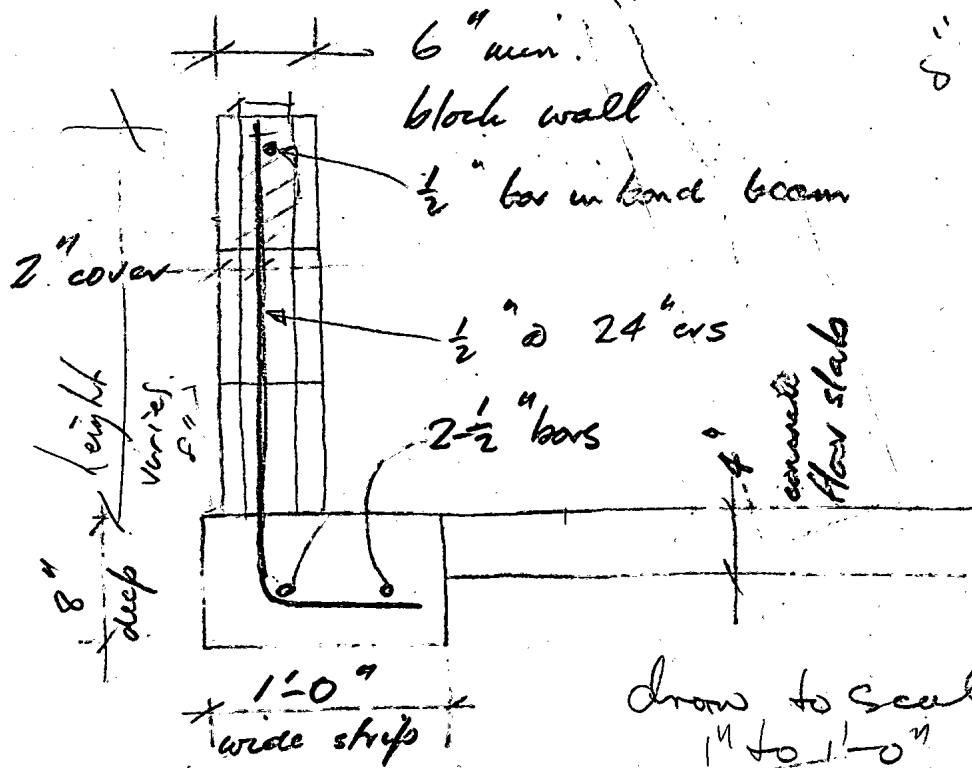 6" min.
block wall
8"
½" bar in bond beam
2" cover
½" @ 24" crs
height
varies
2-½" bars
4"
concrete
floor slab
8"
deep
1'-0"
wide strip
draw to scal
1" to 1'-0"